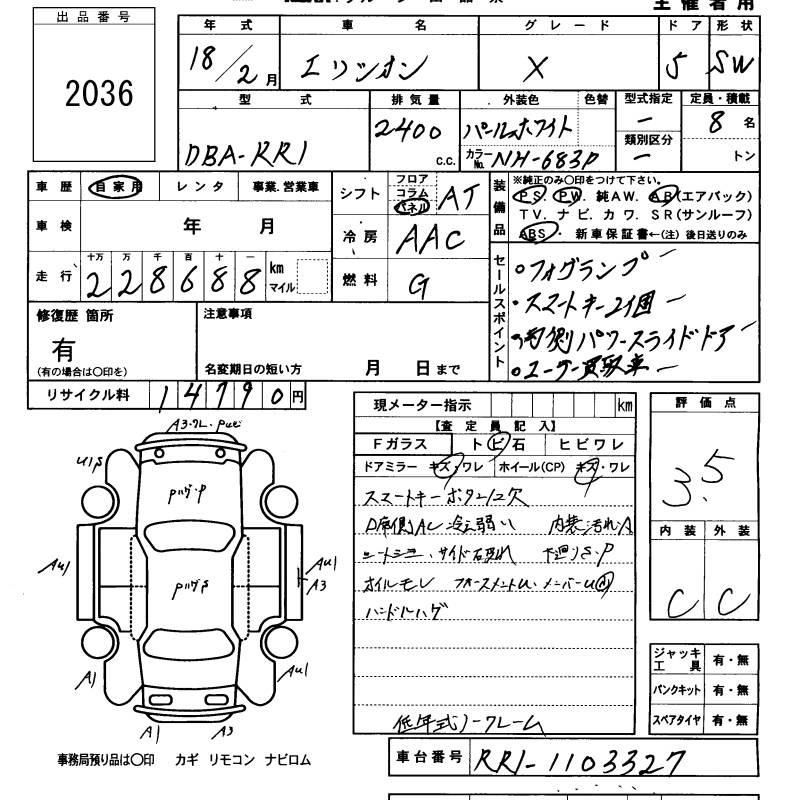 主催者用
出品番号
2036
年式 車名 グレード ドア 形状
18/2月 エリシオン X 5 SW
型式 排気量 外装色 色替 型式指定 定員・積載
DBA-RR1 2400 c.c. パールホワイト ー 8名
カラーNo. NH-683P 類別区分 ー トン
車歴 自家用 レンタ 事業.営業車
シフト フロア コラム パネル AT
装備品 ※純正のみ〇印をつけて下さい。
PS. PW. 純AW. AB(エアバック)
TV. ナビ. カワ. SR(サンルーフ)
ABS・ 新車保証書←(注) 後日送りのみ
車検 年 月
冷房 AAC
走行 十万 万 千 百 十 一
228688 km マイル
燃料 G
セールスポイント
・フォグランプー
・スマートキー2個ー
・両側パワースライドドアー
・ユーザー買取車ー
修復歴 箇所
有
(有の場合は〇印を)
注意事項
名変期日の短い方 月 日まで
リサイクル料 14790円
現メーター指示 km
【査定員記入】
Fガラス トビ石 ヒビワレ
ドアミラー キズ・ワレ ホイール(CP) キズ・ワレ
スマートキーボタン1ケ欠
D席側AC冷え弱い 内装汚れA
シートシミ・サイド石跳れ 下廻りS・P
オイルモレ フォースメントU、メンバーU
ハンドルハゲ
低年式ノークレーム
評価点
3.5
内装 外装
C C
ジャッキ工具 有・無
パンクキット 有・無
スペアタイヤ 有・無
A3・ワレ・Pハゲ
U1S
Pハゲ・P
AU1
PハゲS
AU1
A3
A1
AU1
A1
A3
事務局預り品は〇印 カギ リモコン ナビロム
車台番号 RR1-1103327